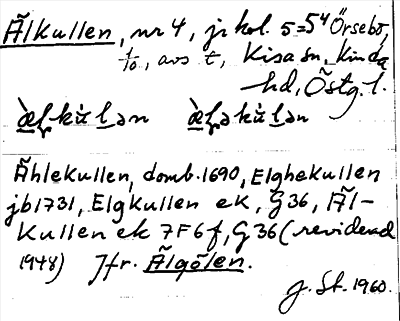 Ãlkullen, nr 4, jr kol. 5=5⁴ Örsebo,
1/10, avs t, Kisa sn, Kinda
hd, Östg. l.
Ãhlekullen, domb. 1690, Elghekullen
jb 1731, Elgkullen ek, G36, Ãl-
kullen ek 7F6f, G36 (reviderad
1948) Jfr. Ãlgölen.
g. St. 1960.